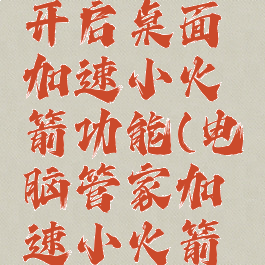 开启桌面
加速小火
箭功能(电
脑管家加
速小火箭